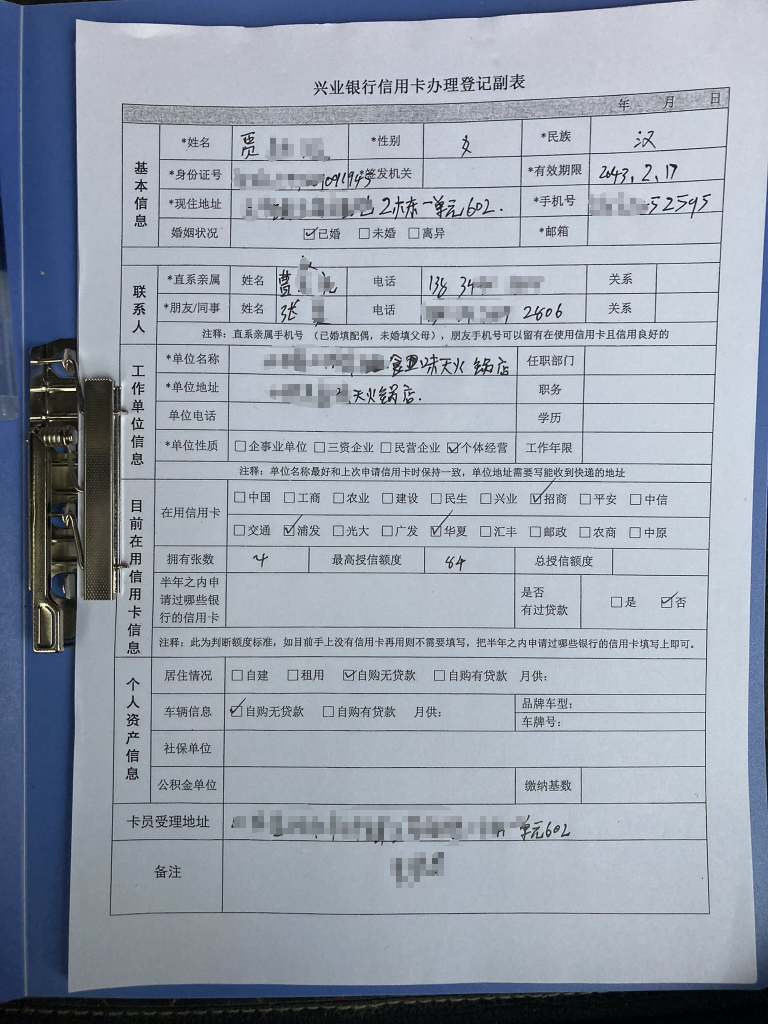 兴业银行信用卡办理登记副表
年 月 日
基本信息
*姓名 贾 *性别 女 *民族 汉
*身份证号 091945 *签发机关 *有效期限 2043.2.17
*现住地址 2栋一单元602. *手机号 52595
婚姻状况 ☑已婚 □未婚 □离异 *邮箱
联系人
*直系亲属 姓名 电话 138 34 关系
*朋友/同事 姓名 张 电话 2606 关系
注释：直系亲属手机号（已婚填配偶，未婚填父母），朋友手机号可以留有在使用信用卡且信用良好的
工作单位信息
*单位名称 味天火锅店 任职部门
*单位地址 天火锅店. 职务
单位电话 学历
*单位性质 □企事业单位 □三资企业 □民营企业 ☑个体经营 工作年限
注释：单位名称最好和上次申请信用卡时保持一致，单位地址需要写能收到快递的地址
目前在用信用卡信息
在用信用卡 □中国 □工商 □农业 □建设 □民生 □兴业 ☑招商 □平安 □中信
□交通 ☑浦发 □光大 □广发 ☑华夏 □汇丰 □邮政 □农商 □中原
拥有张数 4 最高授信额度 84 总授信额度
半年之内申请过哪些银行的信用卡 是否有过贷款 □是 ☑否
注释：此为判断额度标准，如目前手上没有信用卡再用则不需要填写，把半年之内申请过哪些银行的信用卡填写上即可。
个人资产信息
居住情况 □自建 □租用 ☑自购无贷款 □自购有贷款 月供：
车辆信息 ☑自购无贷款 □自购有贷款 月供： 品牌车型：
车牌号：
社保单位
公积金单位 缴纳基数
卡员受理地址 单元602
备注